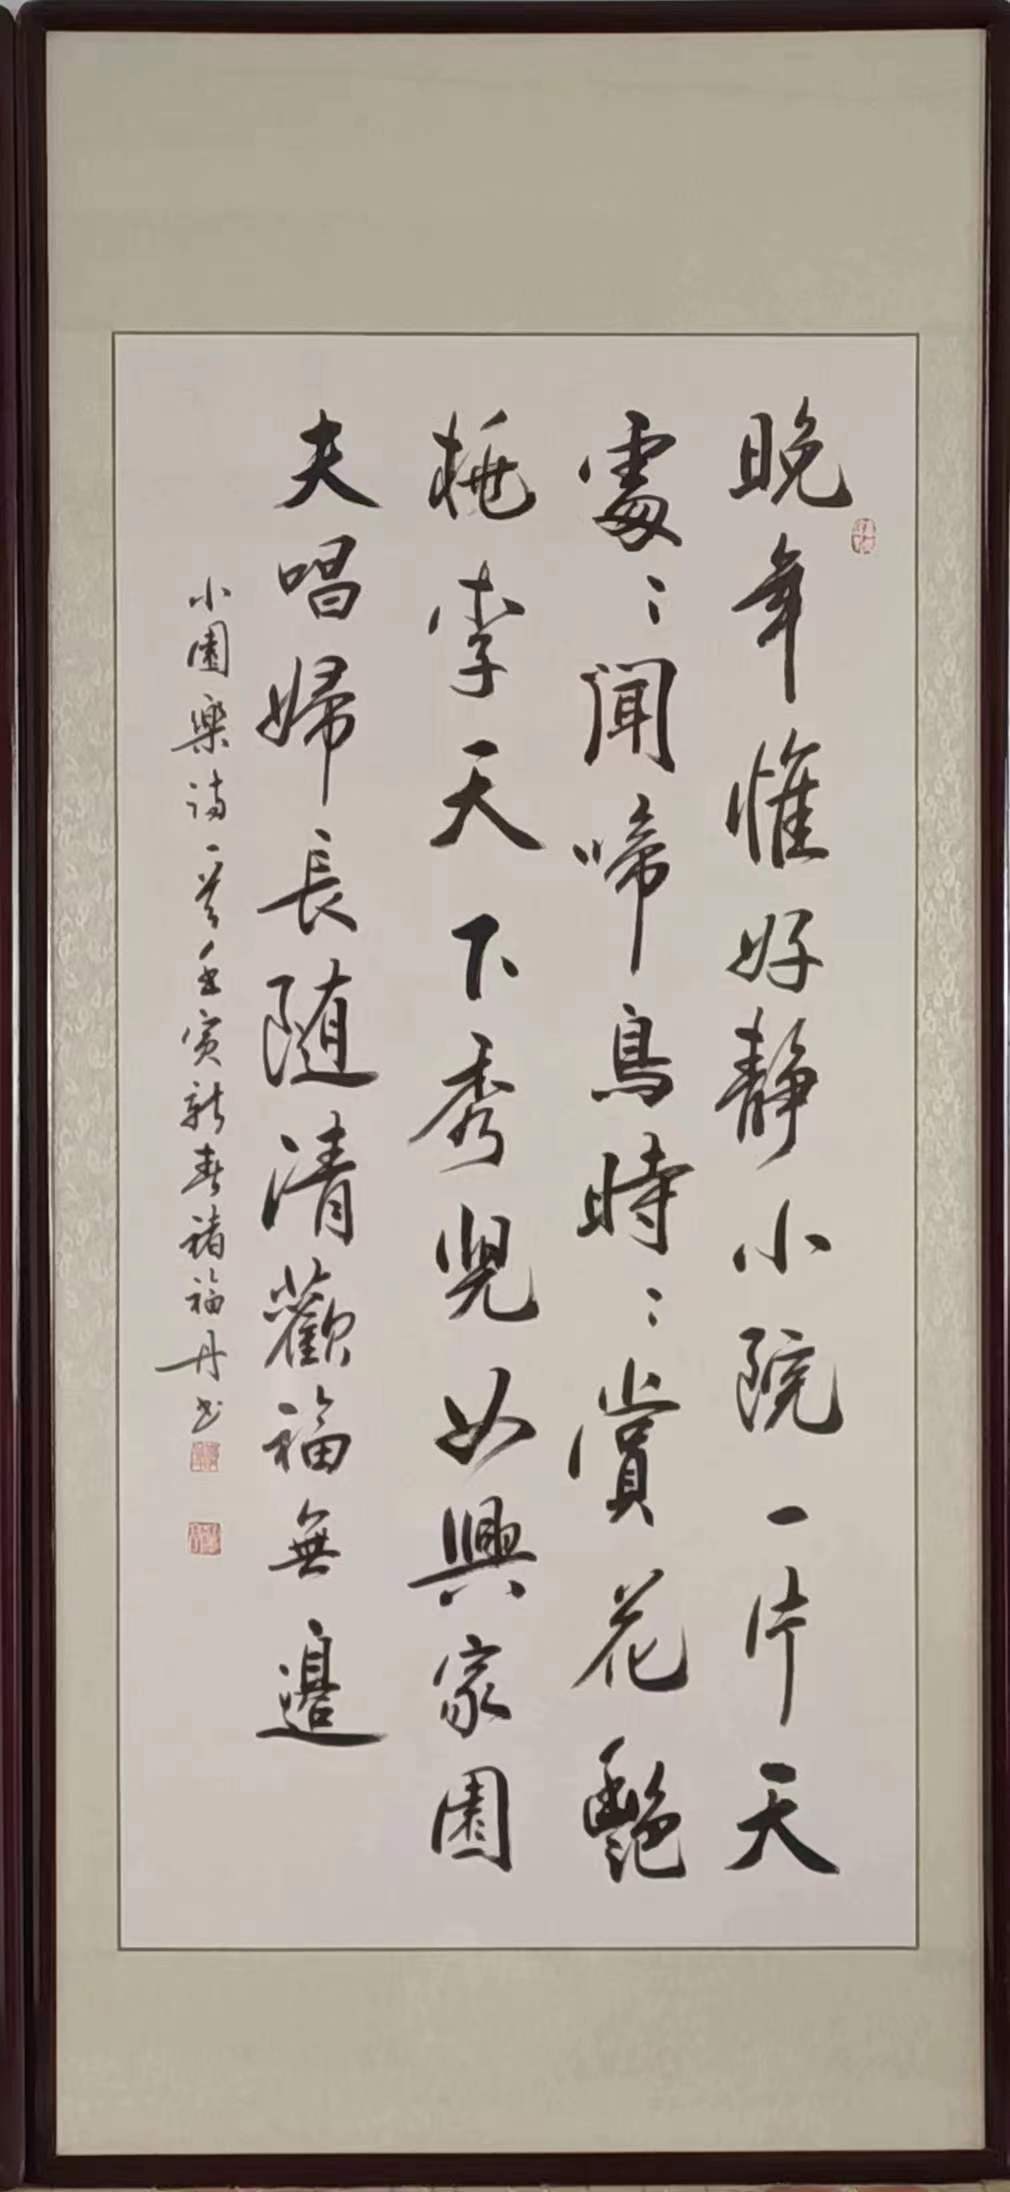 晚年惟好静小院一片天
處〻聞啼鳥時〻賞花艷
桃李天下秀兒女興家園
夫唱婦長随清歡福無邊
小園樂詩一首壬寅新春褚福丹书